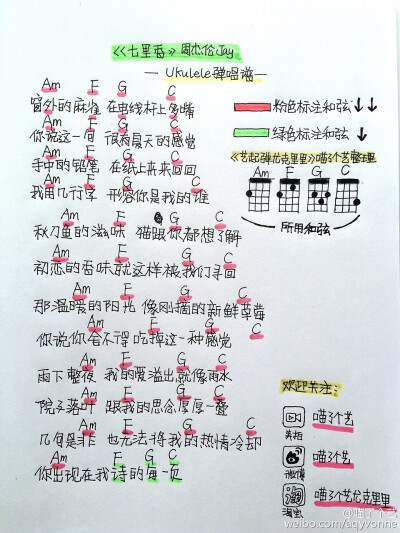 《七里香》周杰伦Jay
— Ukulele弹唱谱 —
Am F G C
窗外的麻雀 在电线杆上多嘴
Am F G C
你说这一句 很有夏天的感觉
Am F G C
手中的铅笔 在纸上来来回回
Am F G C
我用几行字 形容你是我的谁
Am F G C
秋刀鱼的滋味 猫跟你都想了解
Am F G C
初恋的香味就这样被我们寻回
Am F G C
那温暖的阳光 像刚摘的新鲜草莓
Am F G C
你说你舍不得吃掉这一种感觉
Am F G C
雨下整夜 我的爱溢出就像雨水
Am F G C
院子落叶 跟我的思念厚厚一叠
Am F G C
几句是非 也无法将我的热情冷却
Am F G C
你出现在我诗的每一页
粉色标注和弦 ↓↓
绿色标注和弦 ↓
《艺起弹尤克里里》喵3个艺整理
Am F G C
所用和弦
欢迎关注:
喵3个艺
美拍
喵3个艺
微博
喵3个艺尤克里里
淘宝
@喵3个艺
weibo.com/aqyvonne